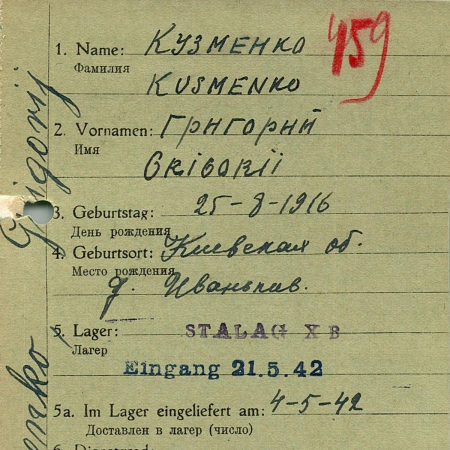 459
1. Name: КУЗМЕНКО
Фамилия
KUSMENKO
2. Vornamen: ГРИГОРИЙ
Имя
GRIGORII
3. Geburtstag: 25-8-1916
День рождения
4. Geburtsort: Киевская об.
Место рождения
д. Иваньков.
5. Lager: STALAG X B
Лагер
Eingang 21.5.42
5a. Im Lager eingeliefert am: 4-5-42
Доставлен в лагер (число)
enko, Grigorij